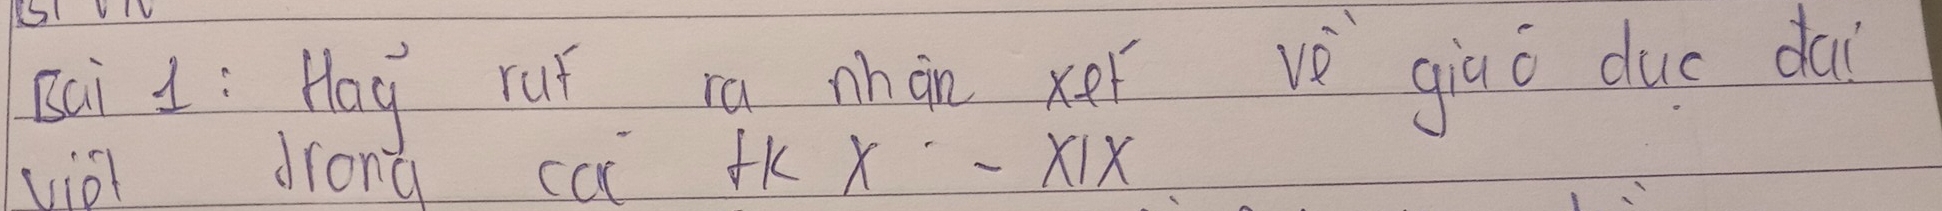 Bài 1: Hãy rút ra nhận xét về giáo dục đại
việt trong các tk X - XIX